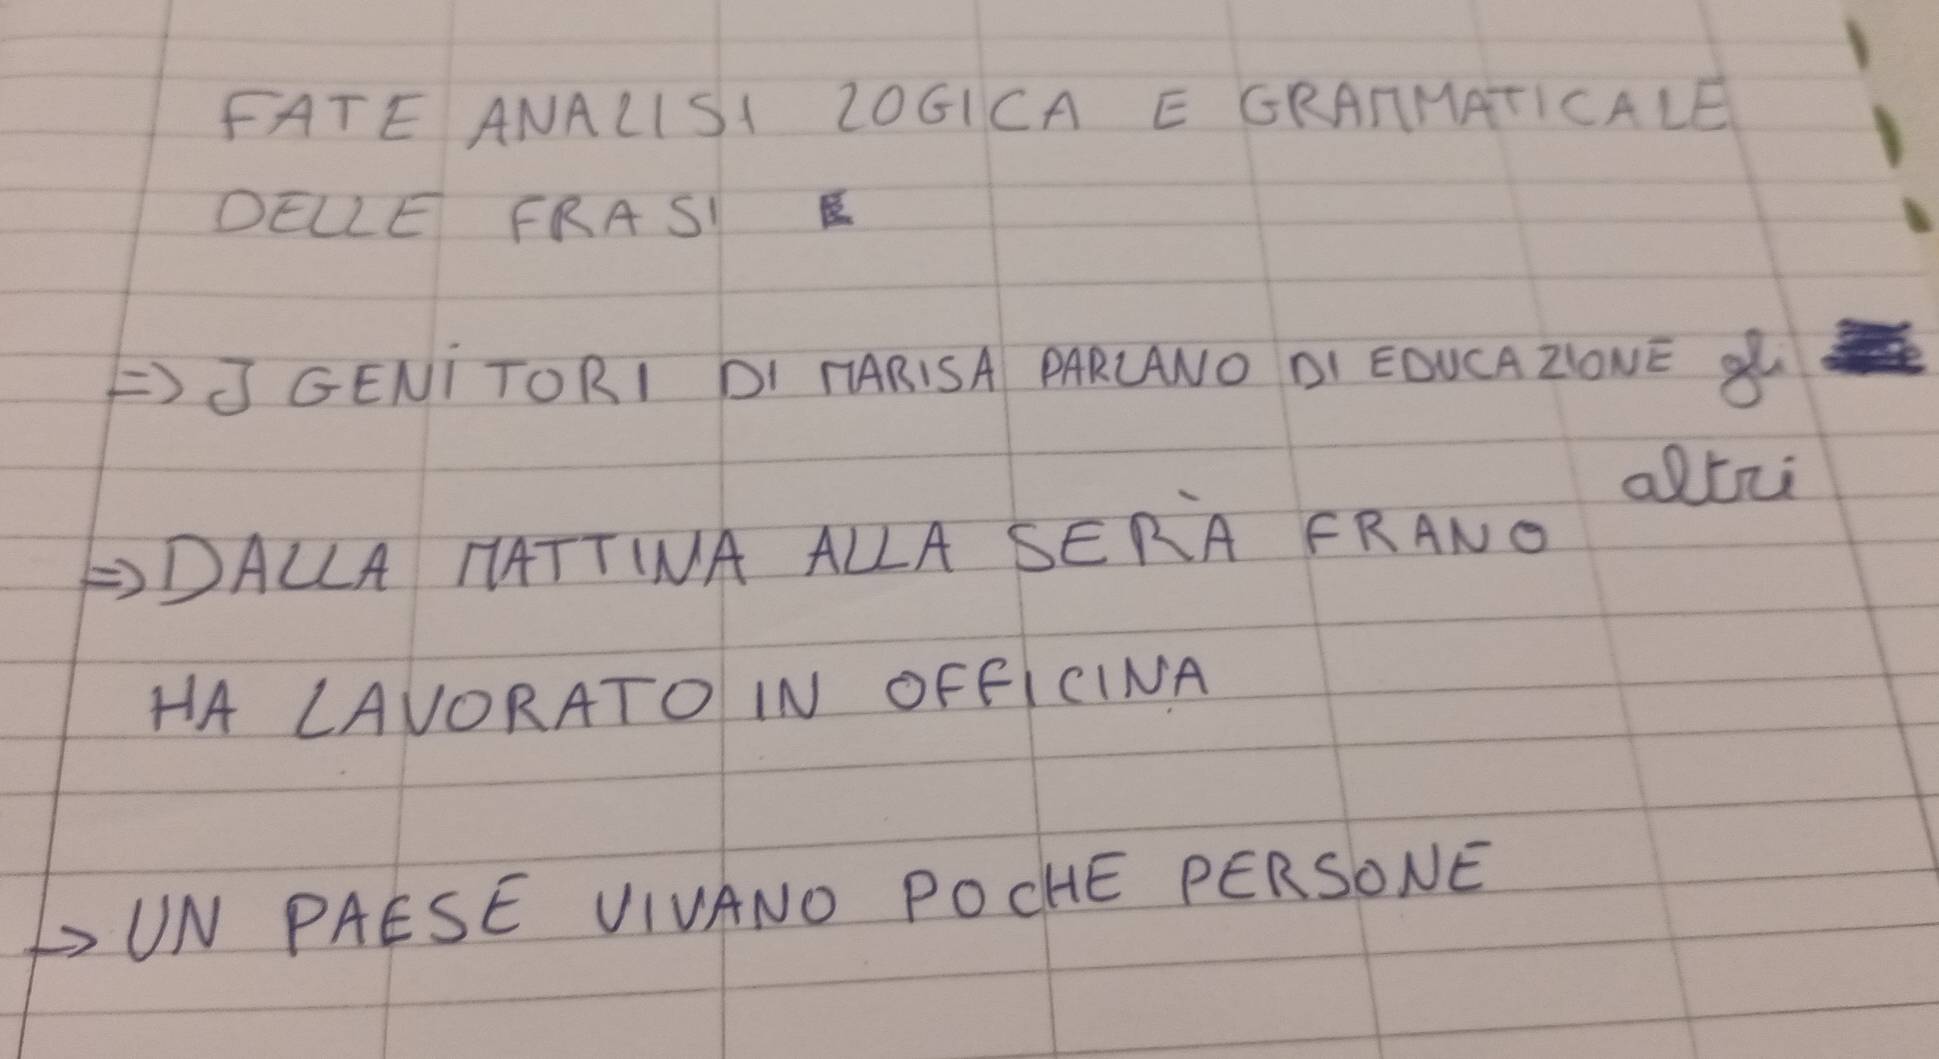 FATE ANALISI LOGICA E GRAMMATICALE
DELLE FRASI E
=> I GENITORI DI MARISA PARLANO DI EDUCAZIONE gli
altri
=> DALLA MATTINA ALLA SERÀ FRANO
HA LAVORATO IN OFFICINA
-> UN PAESE VIVANO POCHE PERSONE